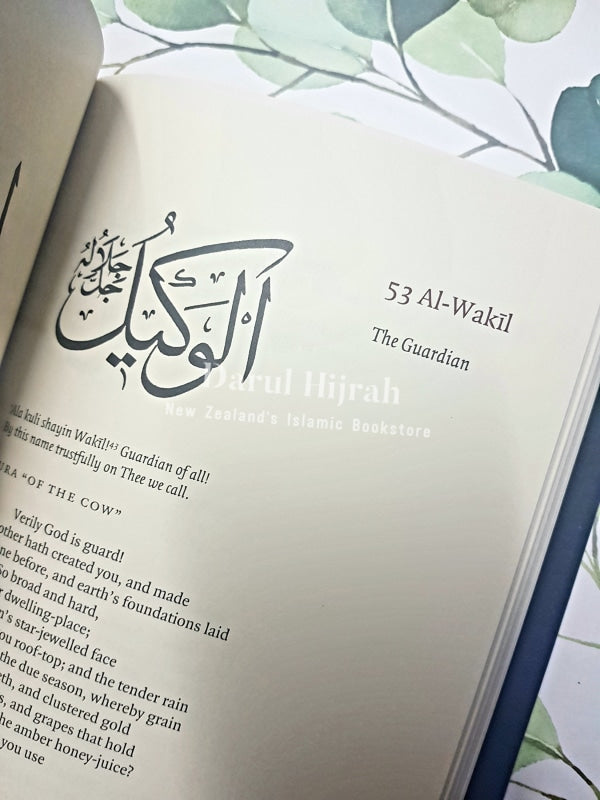 الوكيل
جل جلاله
53 Al-Wakīl
The Guardian
Darul Hijrah
New Zealand's Islamic Bookstore
'Ala kuli shayin Wakīl!⁴³ Guardian of all!
By this name trustfully on Thee we call.
"OF THE COW"
Verily God is guard!
hath created you, and made
before, and earth's foundations laid
So broad and hard,
dwelling-place;
star-jewelled face
roof-top; and the tender rain
the due season, whereby grain
and clustered gold
and grapes that hold
the amber honey-juice?
you use